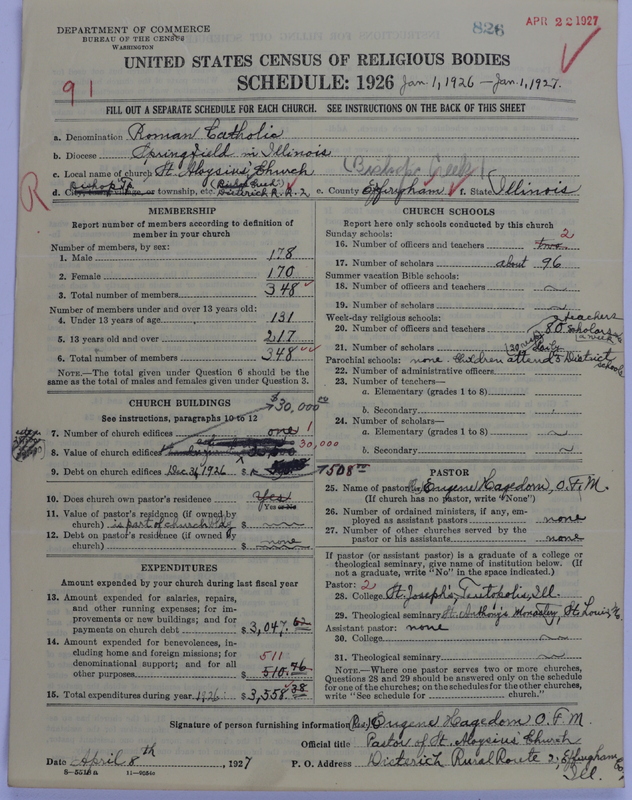 DEPARTMENT OF COMMERCE
BUREAU OF THE CENSUS
WASHINGTON
826
APR 22 1927
UNITED STATES CENSUS OF RELIGIOUS BODIES
SCHEDULE: 1926 Jan. 1, 1926 — Jan. 1, 1927.
91
FILL OUT A SEPARATE SCHEDULE FOR EACH CHURCH. SEE INSTRUCTIONS ON THE BACK OF THIS SHEET
a. Denomination Roman Catholic
b. Diocese Springfield in Illinois
c. Local name of church St. Aloysius' Church (Bishop Creek)
R
d. City, town, village, or township, etc. Bishop Tp. Dieterich R.R. 2 e. County Effingham f. State Illinois
MEMBERSHIP
Report number of members according to definition of member in your church
Number of members, by sex:
1. Male 178
2. Female 170
3. Total number of members 348
Number of members under and over 13 years old:
4. Under 13 years of age 131
5. 13 years old and over 217
6. Total number of members 348
NOTE.—The total given under Question 6 should be the same as the total of males and females given under Question 3.
CHURCH BUILDINGS
See instructions, paragraphs 10 to 12
$30,000.00
7. Number of church edifices one 1
8. Value of church edifices 30,000
9. Debt on church edifices Dec. 31, 1926 $ 7508.00
10. Does church own pastor's residence Yes
Yes or No
11. Value of pastor's residence (if owned by church) is part of church bldg $
12. Debt on pastor's residence (if owned by church) $ none
EXPENDITURES
Amount expended by your church during last fiscal year
13. Amount expended for salaries, repairs, and other running expenses; for improvements or new buildings; and for payments on church debt $ 3,047.62
14. Amount expended for benevolences, including home and foreign missions; for denominational support; and for all other purposes $ 510.76 511
15. Total expenditures during year 1926: $ 3,558.38
CHURCH SCHOOLS
Report here only schools conducted by this church
Sunday schools:
16. Number of officers and teachers two 2
17. Number of scholars about 96
Summer vacation Bible schools:
18. Number of officers and teachers
19. Number of scholars
Week-day religious schools:
20. Number of officers and teachers 2 teachers
21. Number of scholars 80 scholars daily
Parochial schools: none. Children attend 3 District schools
22. Number of administrative officers
23. Number of teachers—
a. Elementary (grades 1 to 8)
b. Secondary
24. Number of scholars—
a. Elementary (grades 1 to 8)
b. Secondary
PASTOR
25. Name of pastor Eugene Hagedorn, O.F.M.
(If church has no pastor, write "None")
26. Number of ordained ministers, if any, employed as assistant pastors none
27. Number of other churches served by the pastor or his assistants none
If pastor (or assistant pastor) is a graduate of a college or theological seminary, give name of institution below. (If not a graduate, write "No" in the space indicated.)
Pastor: 2
28. College St. Joseph's, Teutopolis, Ill.
29. Theological seminary St. Anthony's Monastery, St. Louis, Mo.
Assistant pastor: none
30. College
31. Theological seminary
NOTE.—Where one pastor serves two or more churches, Questions 28 and 29 should be answered only on the schedule for one of the churches; on the schedules for the other churches, write "See schedule for church."
Signature of person furnishing information (Rev.) Eugene Hagedorn O.F.M.
Official title Pastor of St. Aloysius' Church
Date April 8th, 1927 P. O. Address Dieterich Rural Route 2; Effingham Co., Ill.
8—5518a 11—9054a